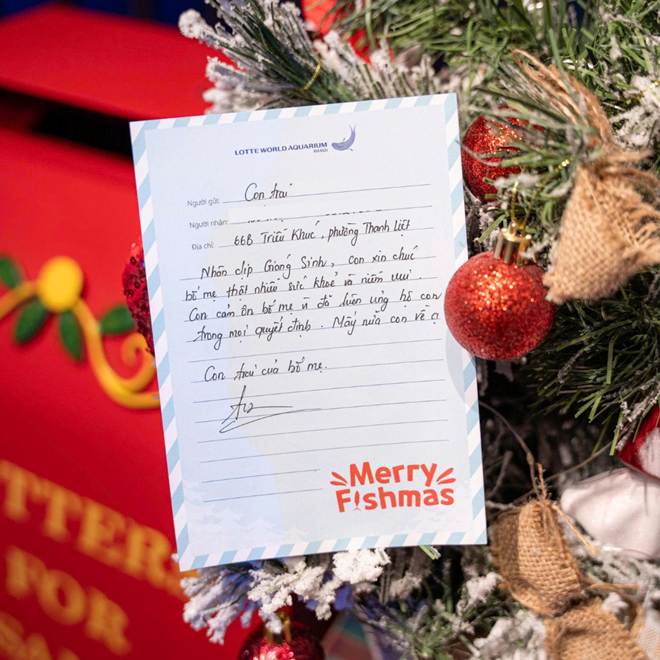 LOTTE WORLD AQUARIUM
HANOI
Người gửi: Con trai
Người nhận:
Địa chỉ: 66B Triều Khúc, phường Thanh Liệt
Nhân dịp Giáng Sinh, con xin chúc
bố mẹ thật nhiều sức khoẻ và niềm vui.
Con cảm ơn bố mẹ vì đã luôn ủng hộ con
trong mọi quyết định. Mấy nữa con về ạ
Con trai của bố mẹ.
Merry
Fishmas
TTERS
FOR